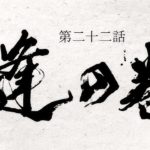 第二十二話
逢の巻